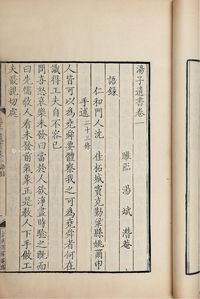 湯子遺書卷一
睢州 湯 斌 潛菴
語錄
仁和門人沈 佳
手述二十三條
人皆可以為堯舜要體察我之可為堯舜者何在
識得工夫自不容已
問喜怒哀樂未發曰當於人欲淨盡時驗之既而
曰先儒教人看未發前氣象正是教人下手做工
夫最親切處